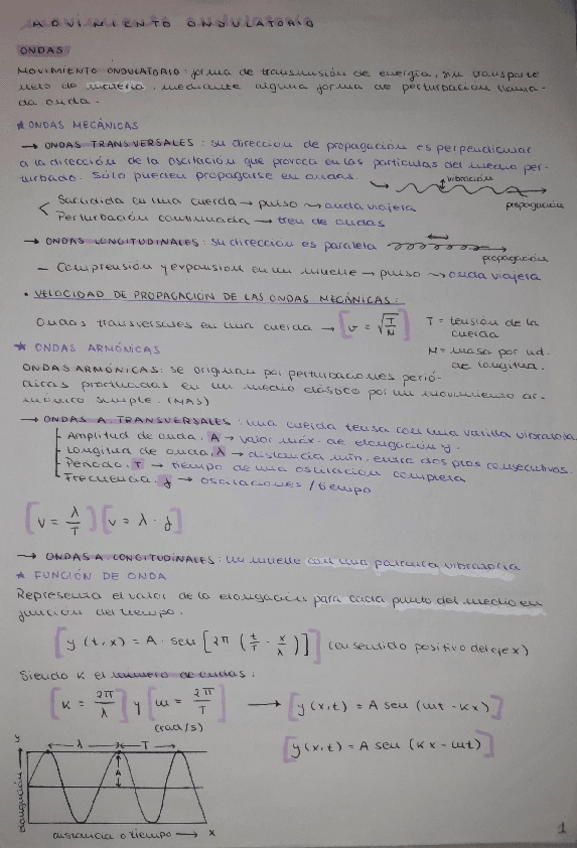 MOVIMIENTO ONDULATORIO
ONDAS
MOVIMIENTO ONDULATORIO: forma de transmisión de energía, sin transporte
neto de materia, mediante alguna forma de perturbación llama-
da onda.
★ ONDAS MECÁNICAS
→ ONDAS TRANSVERSALES: su dirección de propagación es perpendicular
a la dirección de la oscilación que provoca en las partículas del medio per-
turbado. Sólo pueden propagarse en
vibración
propagación
Sacudida en una cuerda → pulso → onda viajera
Perturbación continuada → tren de ondas
→ ONDAS LONGITUDINALES: su dirección es paralela
propagación
- Comprensión y expansión en un muelle → pulso → onda viajera
• VELOCIDAD DE PROPAGACIÓN DE LAS ONDAS MECÁNICAS:
Ondas transversales en una cuerda → [v = √(T/N)]
T = tensión de la
cuerda
N = masa por ud.
de longitud.
★ ONDAS ARMÓNICAS
ONDAS ARMÓNICAS: se originan por perturbaciones perió-
dicas producidas en un medio elástico por un movimiento ar-
mónico simple. (MAS)
→ ONDAS A TRANSVERSALES: una cuerda tensa con una varilla vibratoria
Amplitud de onda, A → valor máx. de elongación y.
Longitud de onda, λ → distancia mín. entre dos ptos consecutivos.
Periodo, T → tiempo de una oscilación completa
Frecuencia, f → oscilaciones / tiempo
[v = λ/T] [v = λ · f]
→ ONDAS A LONGITUDINALES: un muelle con una vibratoria
★ FUNCIÓN DE ONDA
Representa el valor de la elongación para cada punto del medio en
función del tiempo.
[y (t,x) = A · sen [2π (t/T - x/λ)]] (en sentido positivo del eje x)
Siendo K el número de ondas:
[K = 2π/λ] y [ω = 2π/T] → [y (x,t) = A sen (ωt - Kx)]
(rad/s)
[y (x,t) = A sen (Kx - ωt)]
y
← λ → ← T →
A
elongación →
distancia o tiempo → x
1